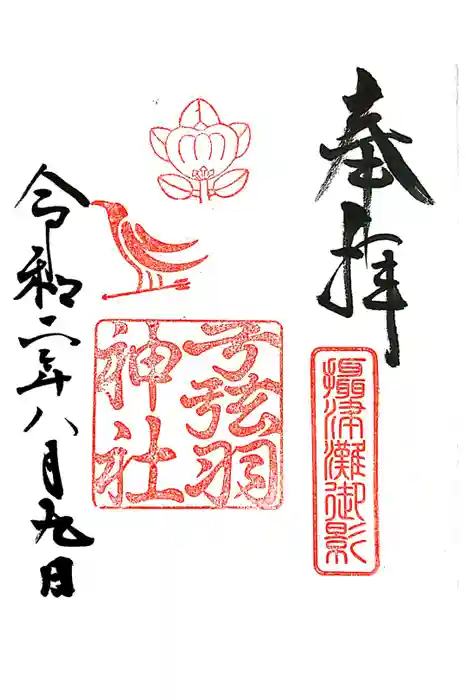 奉拝
攝津灘御影
弓弦羽
神社
令和二年八月九日